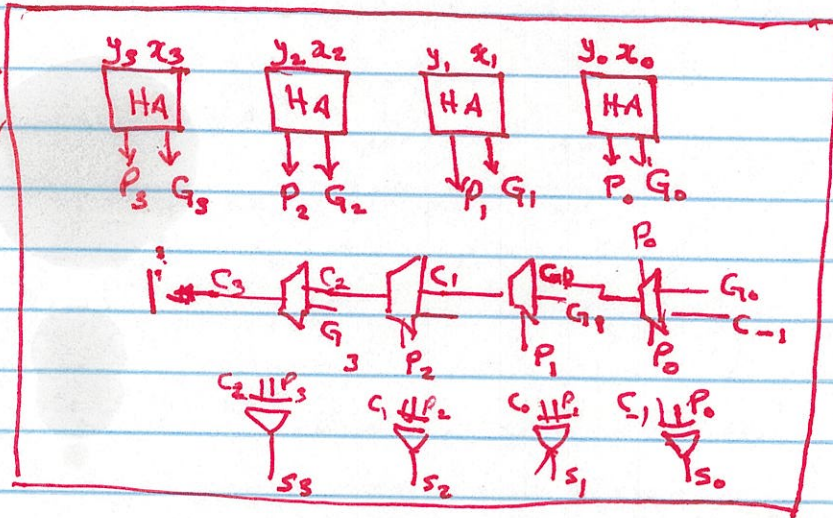 y3 x3 y2 x2 y1 x1 y0 x0
HA HA HA HA
P3 G3 P2 G2 P1 G1 P0 G0
P0
C3 C2 C1 C0 G0
G3 G1 C-1
P2 P1 P0
C2 P3 C1 P2 C0 P1 C-1 P0
S3 S2 S1 S0